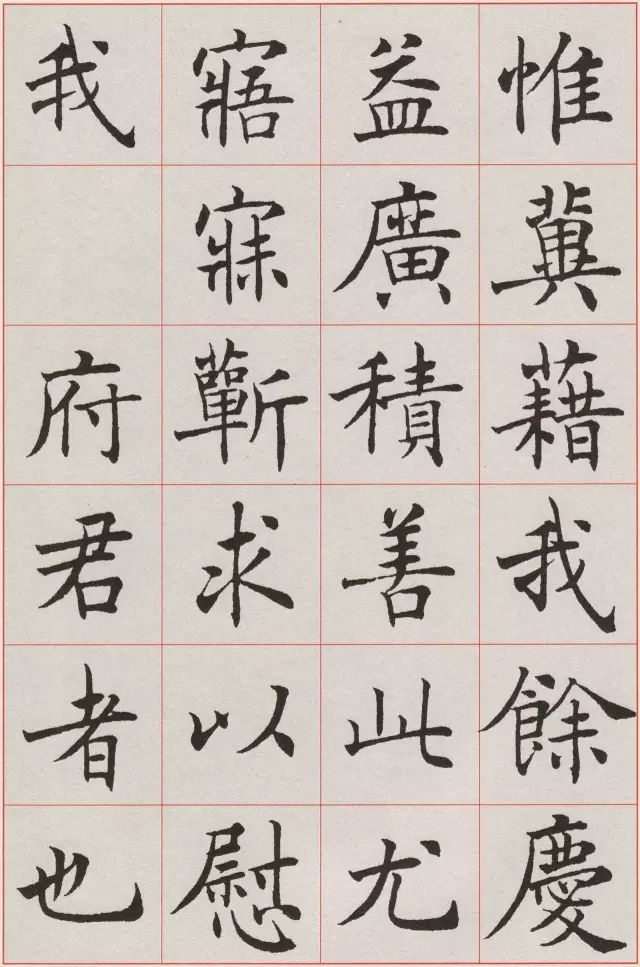 惟冀藉我餘慶
益廣積善此尤
寤寐蘄求以慰
我 府君者也